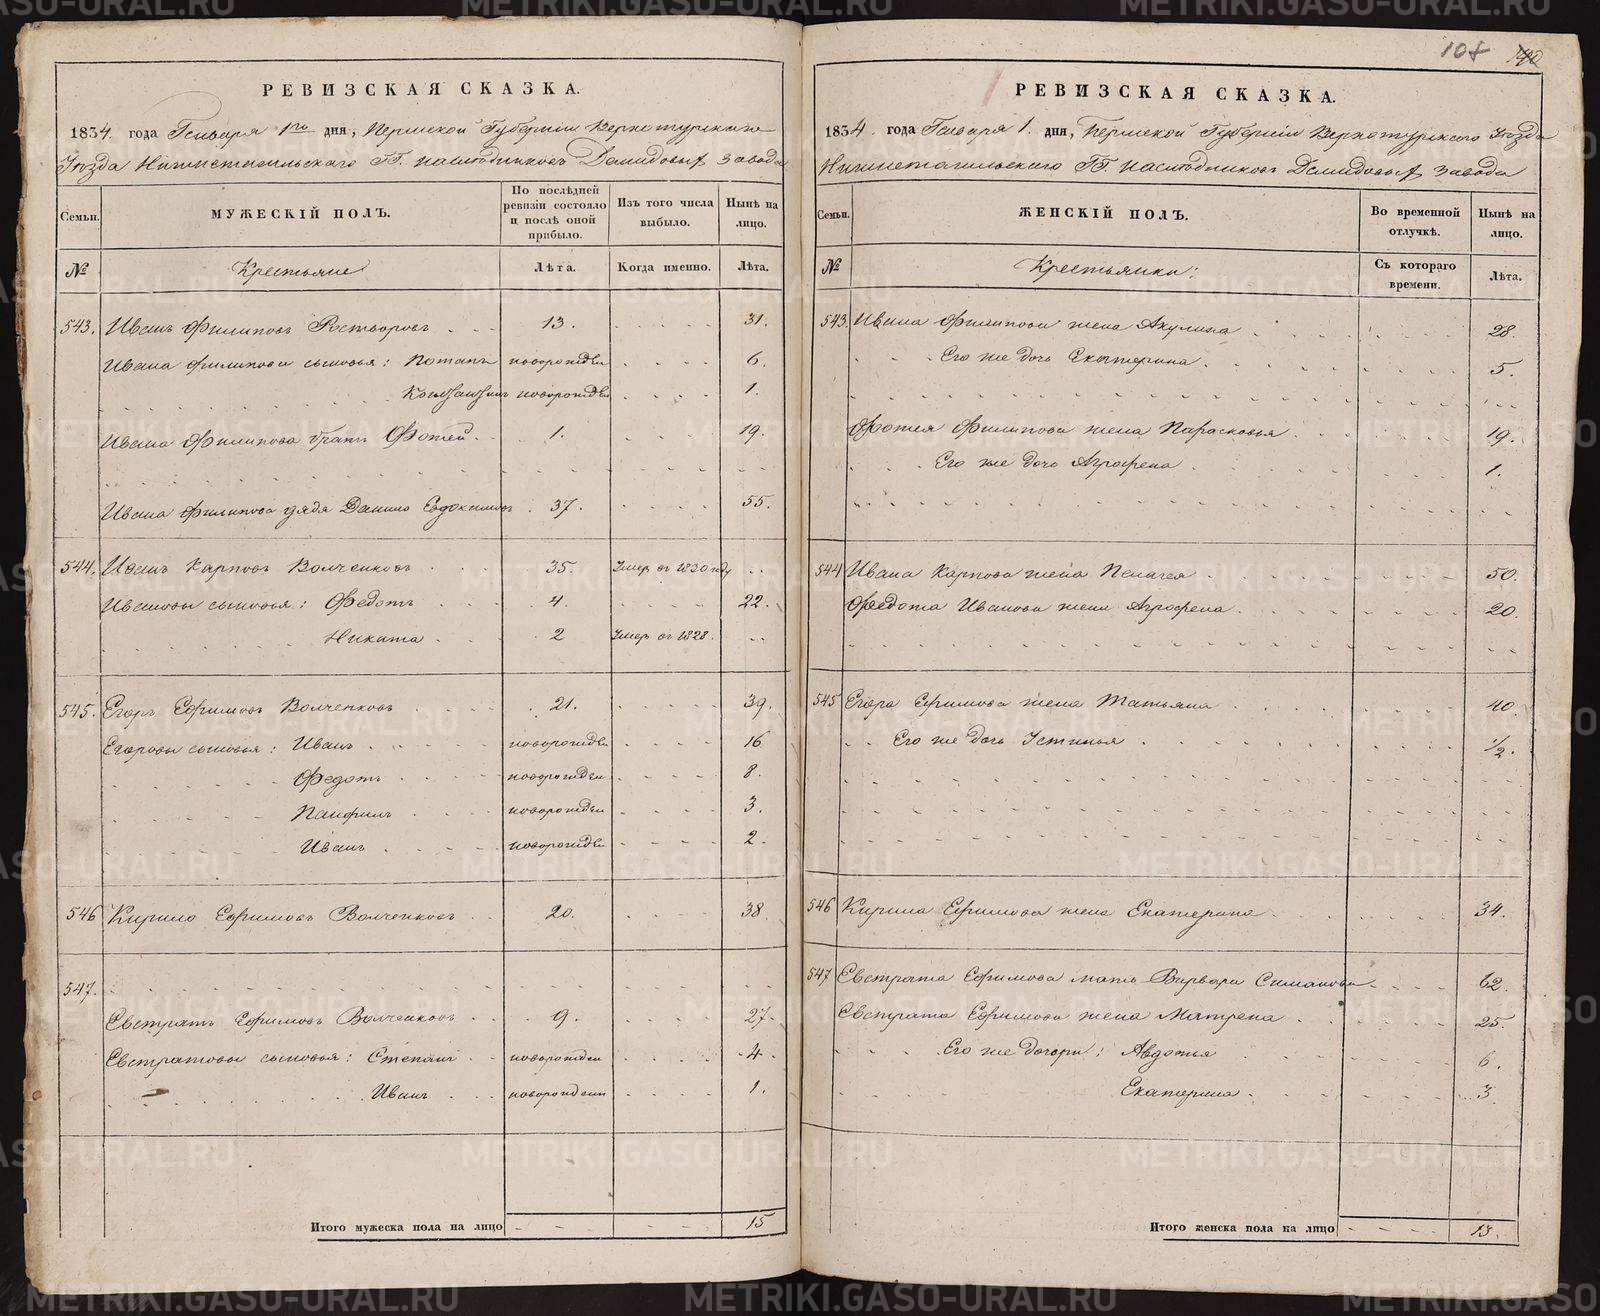 108
РЕВИЗСКАЯ СКАЗКА.
1834. года Генваря 1го дня, Пермской Губернiи Верхотурскаго
Уѣзда Нижнетагильскаго ГГ. наслѣдниковъ Демидовыхъ завода
Семьи. МУЖЕСКIЙ ПОЛЪ. По послѣдней ревизiи состояло и послѣ оной прибыло. Изъ того числа выбыло. Нынѣ на лицо.
№ Крестьяне Лѣта. Когда именно. Лѣта.
543. Иванъ Филиповъ Растворовъ 13. 31.
Ивана Филипова сыновья: Потапъ новорожден 6.
Констанзинъ новорожден 1.
Ивана Филипова братъ Фотей 1. 19.
Ивана Филипова дядя Данило Евдокимовъ 37. 55.
544. Иванъ Карповъ Волченковъ 35. Умеръ въ 1830 году
Ивановы сыновья: Федотъ 4. 22.
Никита 2 Умеръ въ 1828.
545. Егоръ Ефимовъ Волченковъ 21. 39.
Егоровы сыновья: Иванъ новорожден 16
Федотъ новорожден 8.
Панфилъ новорожден 3.
Иванъ новорожден 2.
546 Кирило Ефимовъ Волченковъ 20. 38.
547.
Евстратъ Ефимовъ Волченковъ 9. 27.
Евстратовы сыновья: Степанъ новорожден 4.
Иванъ новорожден 1.
Итого мужеска пола на лицо 15
РЕВИЗСКАЯ СКАЗКА.
1834. года Генваря 1. дня, Пермской Губернiи Верхотурскаго Уѣзда
Нижнетагильскаго ГГ. наслѣдниковъ Демидовыхъ завода
Семьи. ЖЕНСКIЙ ПОЛЪ. Во временной отлучкѣ. Нынѣ на лицо.
№ Крестьянки: Съ котораго времени. Лѣта.
543. Ивана Филипова жена Акулина 28.
Его же дочь Екатерина 5.
Фотея Филипова жена Парасковья 19.
Его же дочь Аграфена 1.
544 Ивана Карпова жена Пелагея 50.
Федота Иванова жена Аграфена 20.
545 Егора Ефимова жена Татьяна 40.
Его же дочь Устинья 1/2.
546 Кирила Ефимова жена Екатерина 34.
547 Евстрата Ефимова мать Варвара Симанова 62.
Евстрата Ефимова жена Матрена 25.
Его же дочери: Авдотья 6.
Екатерина 3.
Итого женска пола на лицо 13.
METRIKI.GASO-URAL.RU